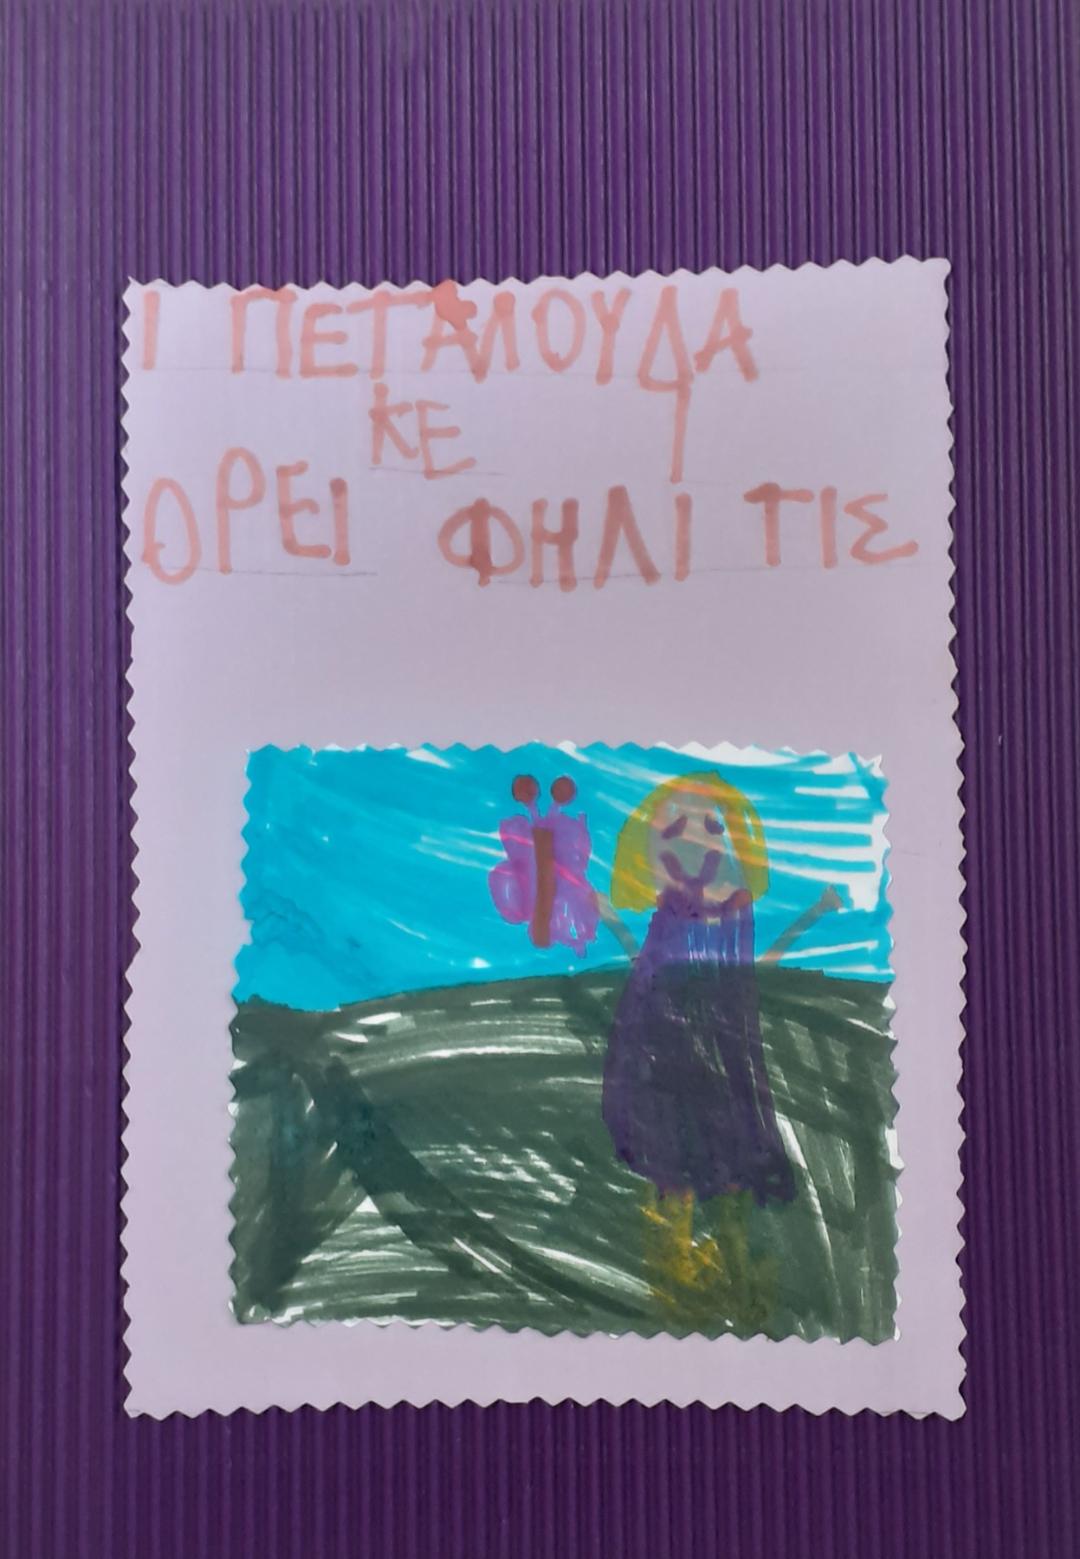 Ι ΠΕΤΑΛΟΥΔΑ
ΚΕ
ΟΡΕΙ ΦΗΛΙ ΤΙΣ